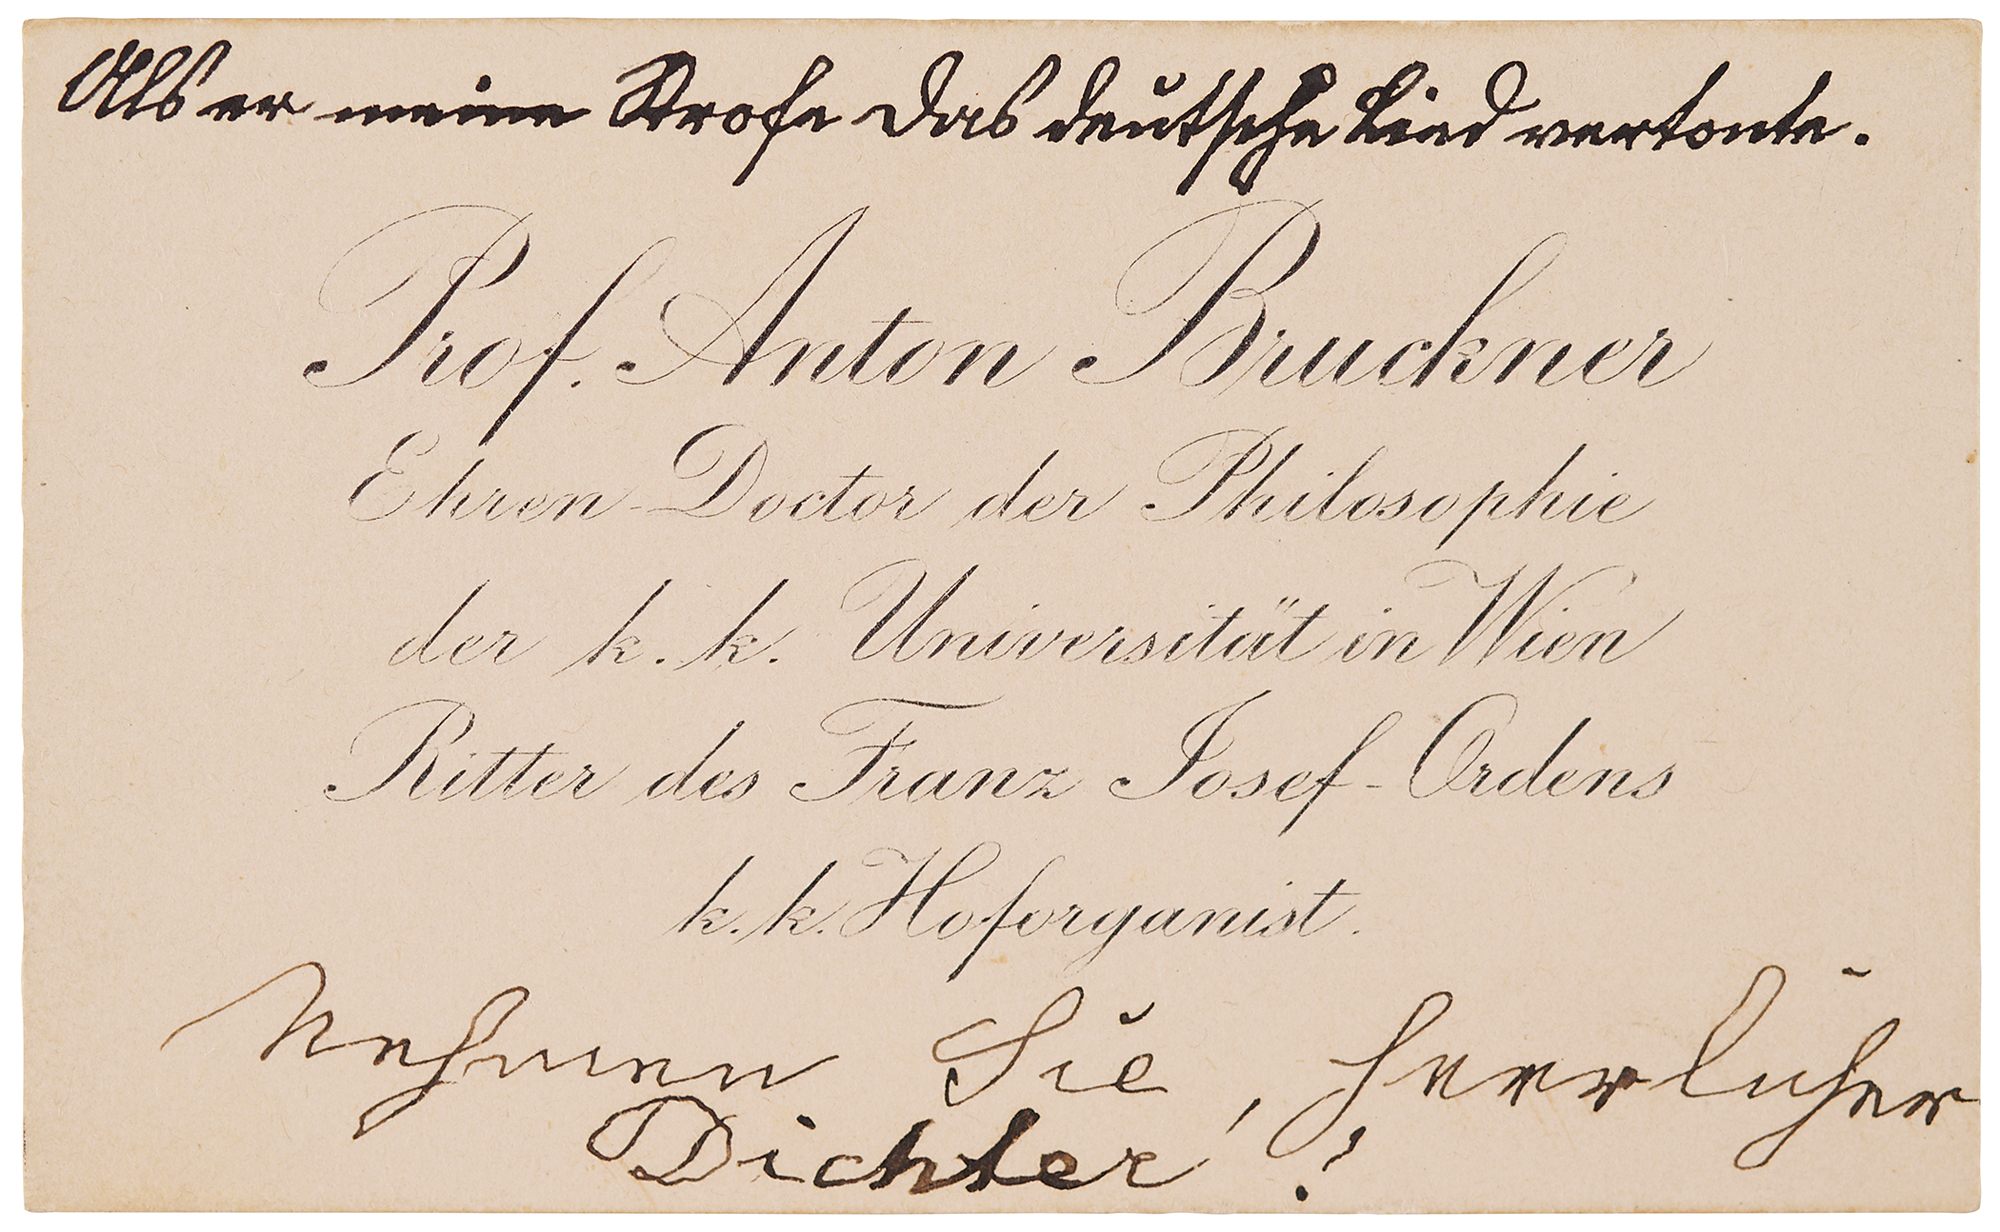 Als er meine Strofe Das deutsche Lied vertonte.
Prof. Anton Bruckner
Ehren-Doctor der Philosophie
der k. k. Universität in Wien
Ritter des Franz Josef-Ordens
k. k. Hoforganist.
Nehmen Sie, herrlicher
Dichter!